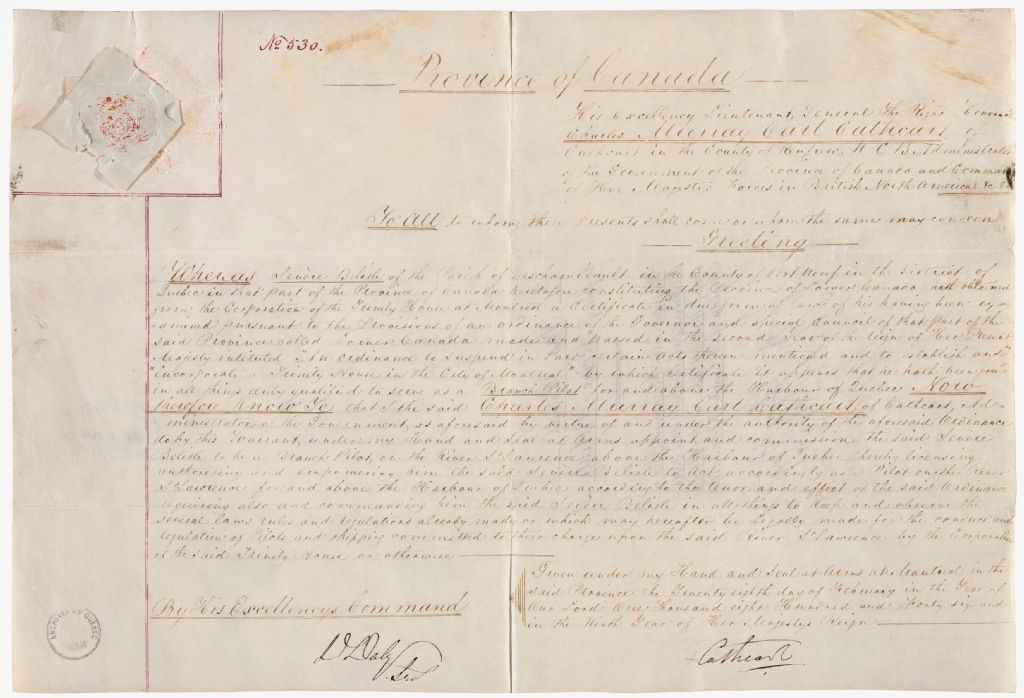 No 530.
Province of Canada
His Excellency Lieutenant General The Right Honora
Charles Murray Earl Cathcart, of
Cathcart in the County of Renfrew, K C B. Administrator
of the Government of the Province of Canada and Comman
of Her Majesty's Forces in British North America &c &c
To All to whom these Presents shall come or whom the same may concern
Greeting
Whereas Sevère Belisle of the Parish of Deschambeault in the County of Portneuf in the District of
Quebec in that part of the Province of Canada heretofore constituting the Province of Lower Canada hath obtained
from the Corporation of the Trinity House at Montreal a Certificate in due form of law of his having been ex-
amined pursuant to the Provisions of an ordinance of the Governor and special Council of that part of the
said Province called Lower Canada made and passed in the second Year of the reign of Her Present
Majesty intituled "An Ordinance to Suspend in Part certain acts therein mentioned and to establish and
"incorporate a Trinity House in the City of Montreal" by which certificate it appears that he hath been found
in all things duly qualified to serve as a Branch Pilot for and above the Harbour of Quebec Now
therefore Know Ye that I the said Charles Murray Earl Cathcart, of Cathcart, Ad-
ministrator of the Government, as aforesaid by virtue of and under the authority of the aforesaid Ordinance
do by this Warrant, under my Hand and Seal at Arms appoint and commission the said Sevère
Belisle to be a Branch Pilot, on the River St Lawrence above the Harbour of Quebec hereby licensing
authorising and empowering him the said Sevère Belisle to act accordingly as a Pilot on the River
St Lawrence for and above the Harbour of Quebec according to the tenor and effect of the said Ordinance
requiring also and commanding him the said Sevère Belisle in all things to keep and observe the
several laws rules and regulations already made or which may hereafter be Legally made for the conduct and
regulation of Pilots and shipping committed to their charge upon the said River St Lawrence by the Corporation
of the said Trinity House or otherwise
Given under my Hand and Seal at Arms at Montreal in the
said Province the Twenty eighth day of February in the Year of
Our Lord One Thousand eight Hundred and Forty six and
in the Ninth Year of Her Majesty's Reign
By His Excellencys Command
D Daly
Sec
Cathcart
ARCHIVES DE QUÉBEC